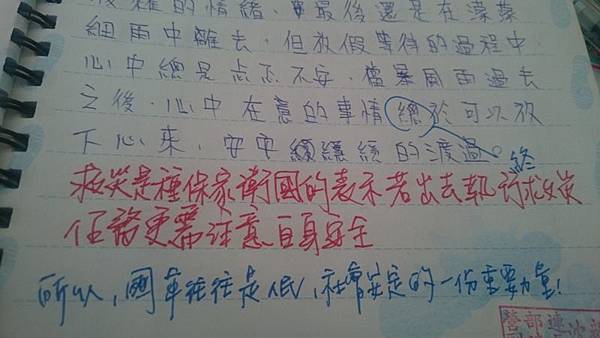 的情緒,最後還是在濛濛
細雨中離去,但放假等待的過程中
心中總是忐忑不安,當暴風雨過去
之後,心中在意的事情總於可以放
下心來,安安穩穩的渡過。
終
救災是種保家衛國的表示若出去執行救災
任務更需注意自身安全
所以,國軍往往是人民,社會安定的一份重要力量!
營部連